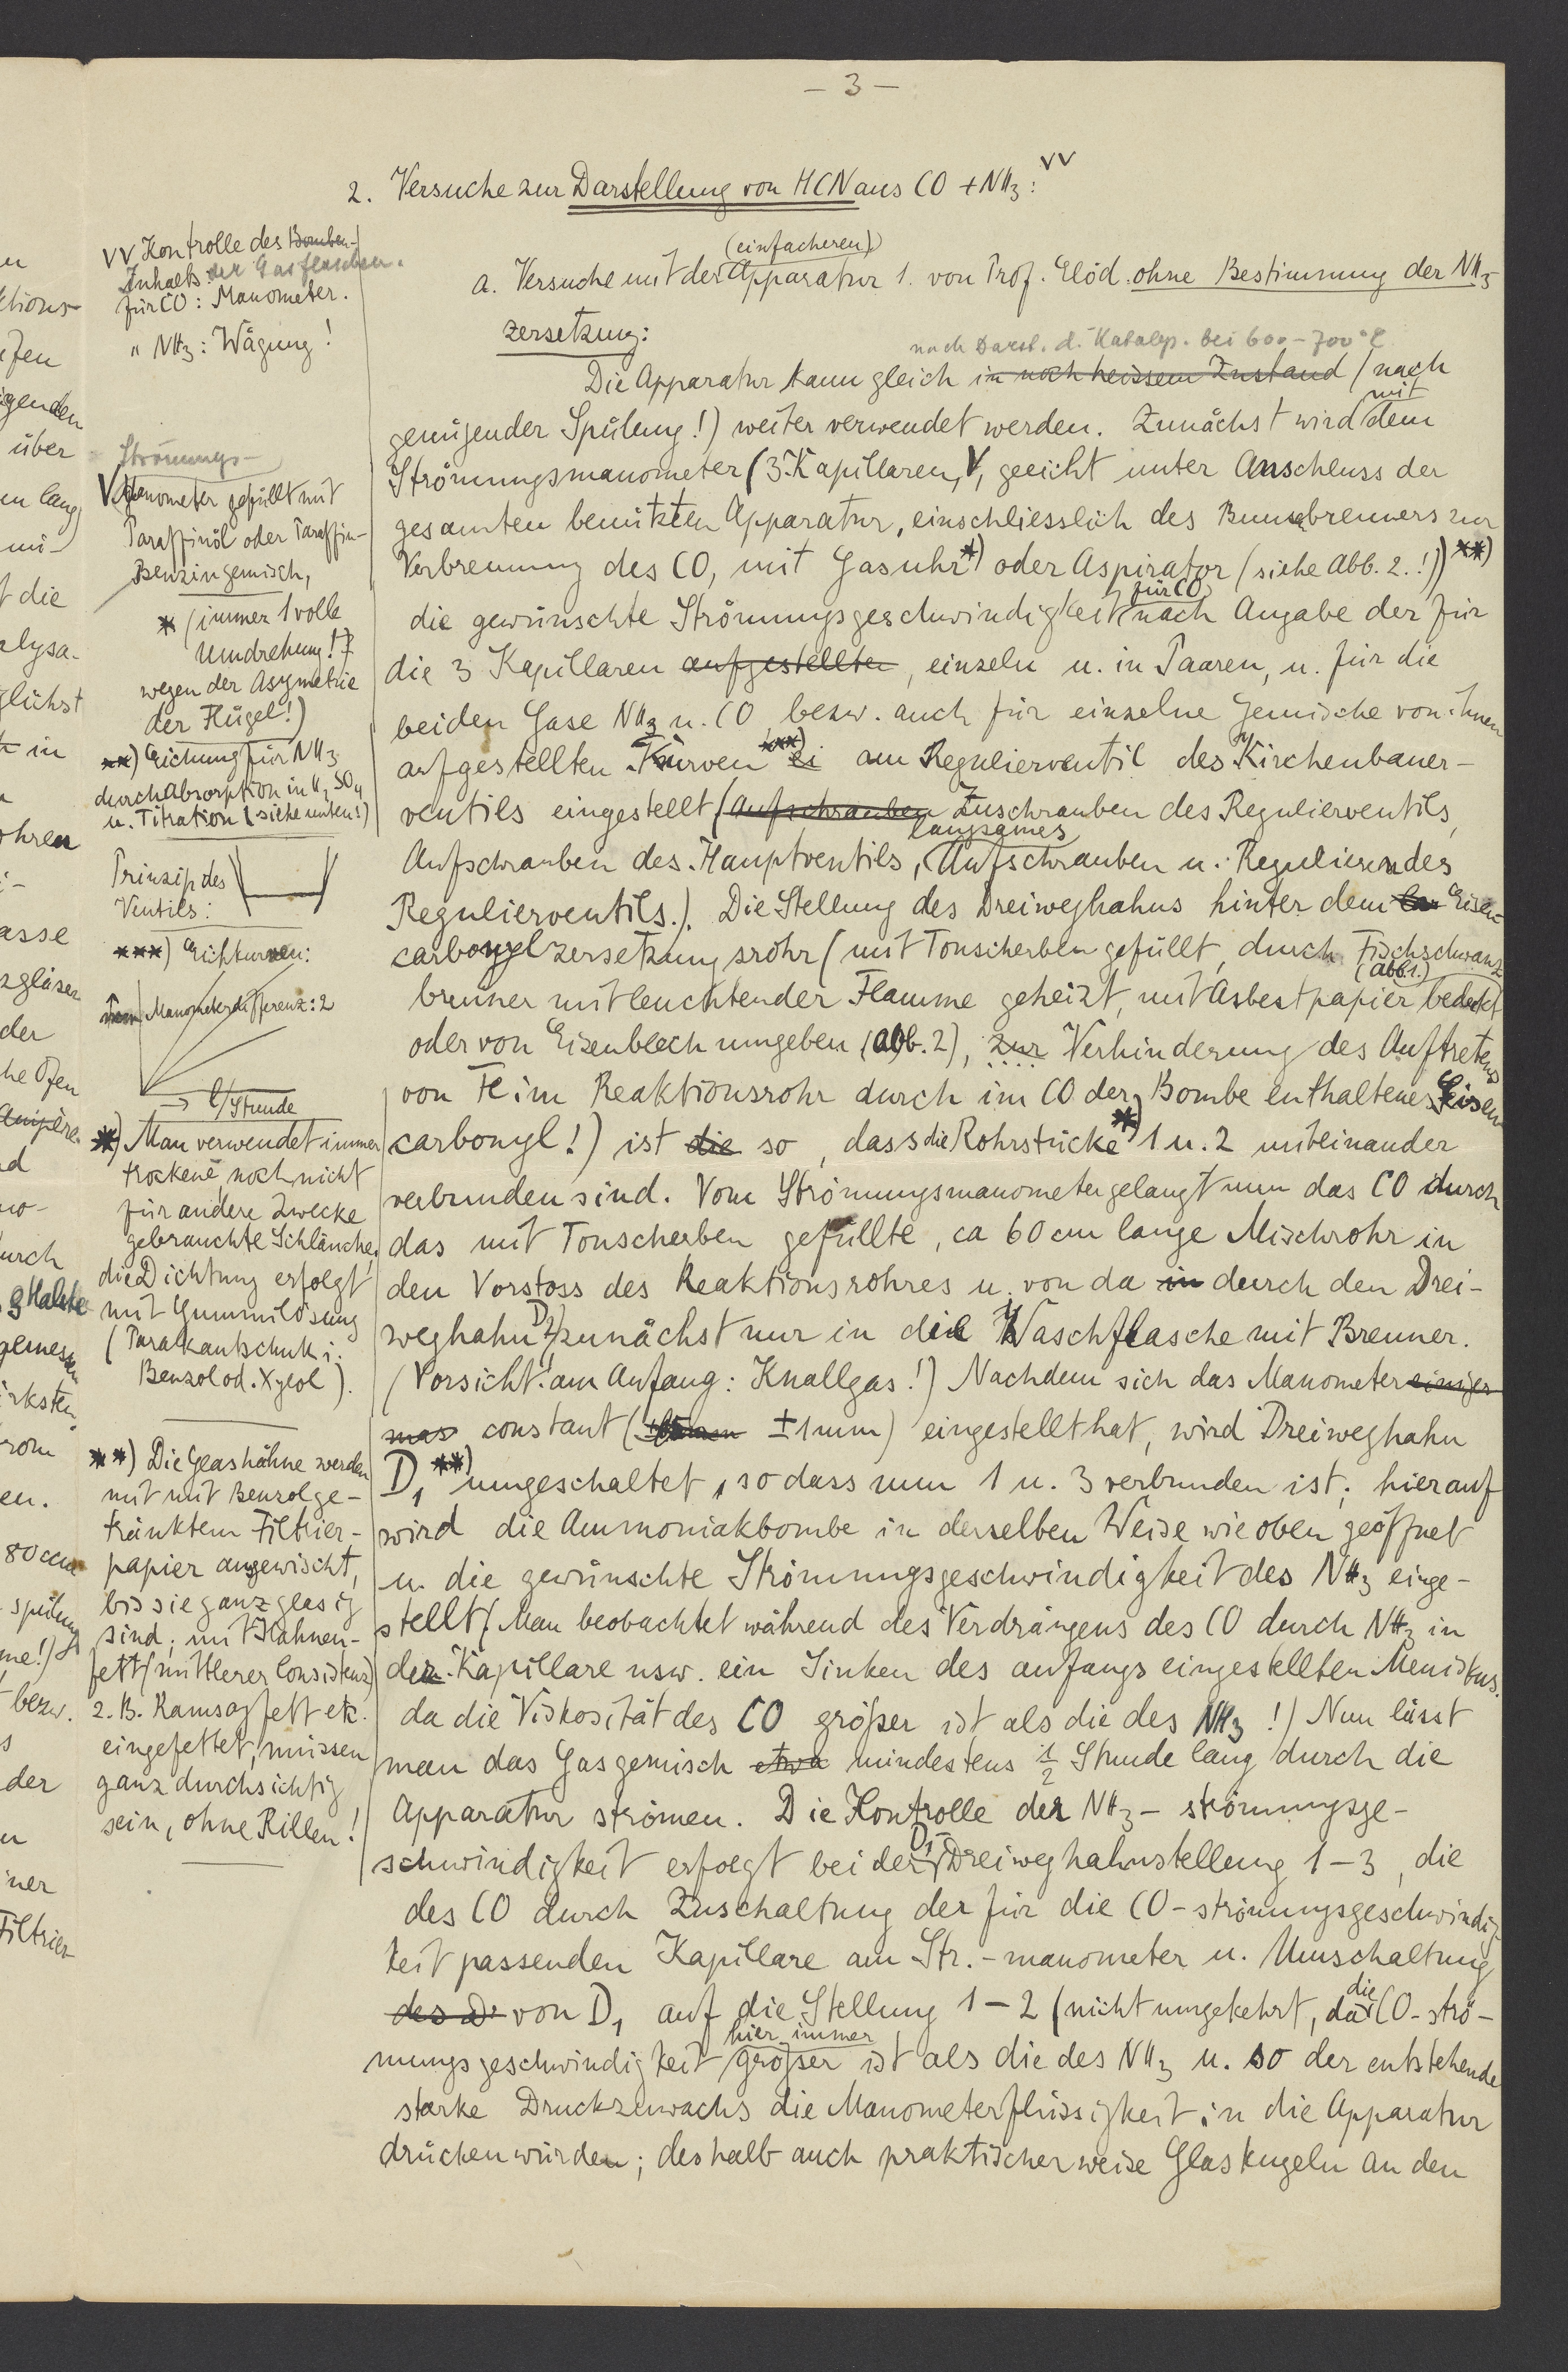 — 3 —
2. Versuche zur Darstellung von HCN aus CO + NH3: VV
(einfacheren)
a. Versuche mit der Apparatur 1. von Prof. Elöd ohne Bestimmung der NH3
zersetzung:
nach Darst. d. Katalys. bei 600-700°C
Die Apparatur kann gleich in noch heissem Zustand (nach
genügender Spülung!) weiter verwendet werden. Zunächst wird mit dem
Strömungsmanometer (3 Kapillaren, V, geeicht unter Anschluss der
gesamten benützten Apparatur, einschliesslich des Bunsenbrenners zur
Verbrennung des CO, mit Gasuhr *) oder Aspirator (siehe Abb. 2.!)) **)
für CO
die gewünschte Strömungsgeschwindigkeit nach Angabe der für
die 3 Kapillaren aufgestellten, einzeln u. in Paaren, u. für die
beiden Gase NH3 u. CO bezw. auch für einzelne Gemische von ihnen
aufgestellten Kurven ***) ei am Regulierventil des Kirchenbauer-
ventils eingestellt (Aufschrauben Zuschrauben des Regulierventils,
langsames
Aufschrauben des Hauptventils, Aufschrauben u. Regulieren des
Regulierventils.). Die Stellung des Dreiweghahns hinter dem Eisen-
carbonylzersetzungsrohr (mit Tonscherben gefüllt, durch Fischschwanz
(Abb 1.)
brenner mit leuchtender Flamme geheizt, mit Asbestpapier bedeckt
oder von Eisenblech umgeben (Abb. 2), zur Verhinderung des Auftretens
von Fe im Reaktionsrohr durch im CO der Bombe enthaltenes Eisen
carbonyl!) ist die so, dass die Rohrstücke *) 1 u. 2 miteinander
verbunden sind. Vom Strömungsmanometer gelangt nun das CO durch
das mit Tonscherben gefüllte, ca 60 cm lange Mischrohr in
den Vorstoss des Reaktionsrohres u. von da in durch den Drei-
weghahn D2 zunächst nur in die Waschflasche mit Brenner.
(Vorsicht! am Anfang: Knallgas!) Nachdem sich das Manometer einiger
mas constant (±1mm) eingestellt hat, wird Dreiweghahn
D1 **) umgeschaltet, so dass nun 1 u. 3 verbunden ist; hierauf
wird die Ammoniakbombe in derselben Weise wie oben geöffnet
u. die gewünschte Strömungsgeschwindigkeit des NH3 einge-
stellt (Man beobachtet während des Verdrängens des CO durch NH3 in
der Kapillare usw. ein Sinken des anfangs eingestellten Meniskus.
da die Viskosität des CO größer ist als die des NH3 !) Nun lässt
man das Gasgemisch etwa mindestens 1/2 Stunde lang durch die
Apparatur strömen. Die Kontrolle der NH3 - strömungsge-
schwindigkeit erfolgt bei der D1-Dreiweghahnstellung 1-3, die
des CO durch Zuschaltung der für die CO-strömungsgeschwindig
keit passenden Kapillare am Str.-manometer u. Umschaltung
des D1 von D1 auf die Stellung 1-2 (nicht umgekehrt, da die CO-strö-
hier immer
mungsgeschwindigkeit größer ist als die des NH3 u. so der entstehende
starke Druckzuwachs die Manometerflüssigkeit in die Apparatur
drücken würden; deshalb auch praktischerweise Glaskugeln an den
VV Kontrolle des Bomben-
Inhalts der Gasflaschen.
für CO: Manometer.
" NH3: Wägung!
Strömungs-
V Manometer gefüllt mit
Paraffinöl oder Paraffin-
Benzingemisch,
* (immer 1 volle
Umdrehung!
wegen der Asymetrie
der Flügel!)
**) Eichung für NH3
durch Absorption in H2SO4
u. Titration (siehe unten!)
Prinzip des
Ventils:
***) Eichkurven:
Manometerdifferenz: 2
→ l/Stunde
*) Man verwendet immer
trockene, noch nicht
für andere Zwecke
gebrauchte Schläuche,
die Dichtung erfolgt
mit Gummilösung
(Parakautschuk i.
Benzol od. Xylol).
**) Die Glashähne werden
mit mit Benzol ge-
tränktem Filtrier-
papier ausgewischt,
bis sie ganz glasig
sind; mit Hahnen-
fett (mittlerer Consistenz)
z. B. Ramsayfett etc.
eingefettet, müssen
ganz durchsichtig
sein, ohne Rillen!